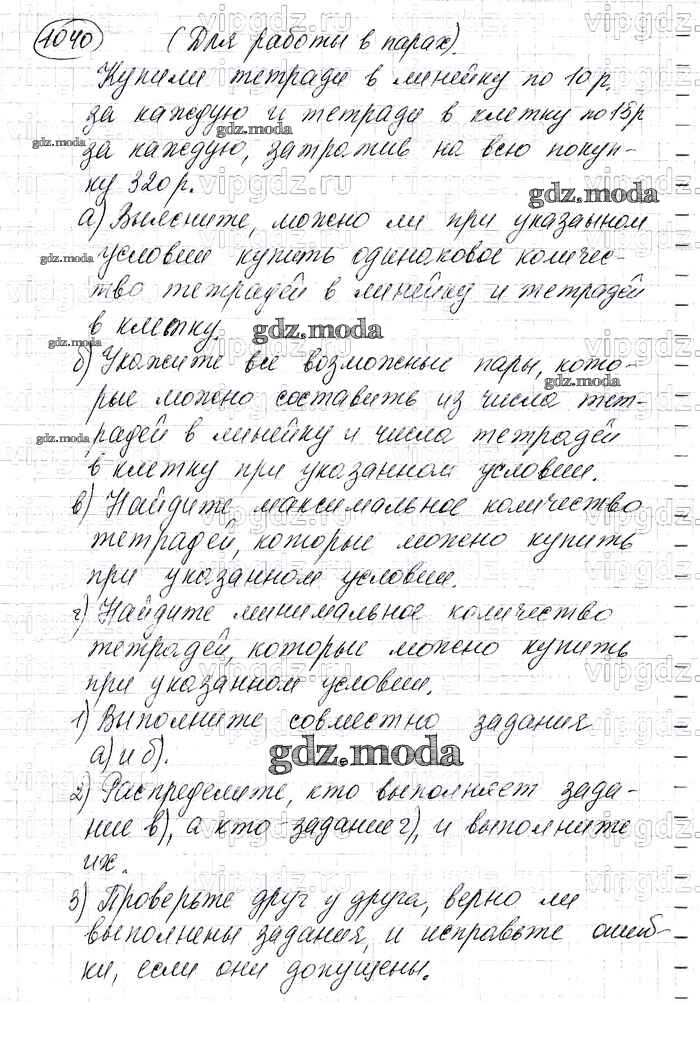 1040 (Для работы в парах).
Купили тетради в линейку по 10р.
за каждую и тетради в клетку по 15р
gdz.moda
за каждую, затратив на всю покуп-
gdz.moda
ку 320р.
vipgdz.ru
gdz.moda
а) Выясните, можно ли при указанном
условии купить одинаковое количес-
gdz.moda
тво тетрадей в линейку и тетрадей
в клетку.
gdz.moda
gdz.moda
б) Укажите все возможные пары, кото-
gdz.moda
рые можно составить из числа тет-
радей в линейку и числа тетрадей
gdz.moda
в клетку при указанном условии.
в) Найдите максимальное количество
vipgdz.ru
тетрадей, которые можно купить
при указанном условии.
г) Найдите минимальное количество
тетрадей, которые можно купить
vipgdz.ru
при указанном условии.
1) Выполните совместно задания
а) и б).
gdz.moda
2) Распределите, кто выполняет зада-
ние в), а кто-задание г), и выполните
vipgdz.ru
их.
3) Проверьте друг у друга, верно ли
выполнены задания, и исправьте ошиб-
ки, если они допущены.